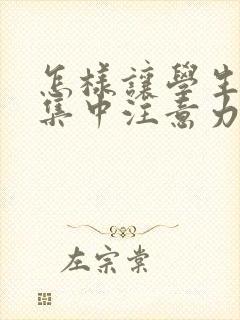 怎樣讓學生
集中注意力
左宗棠